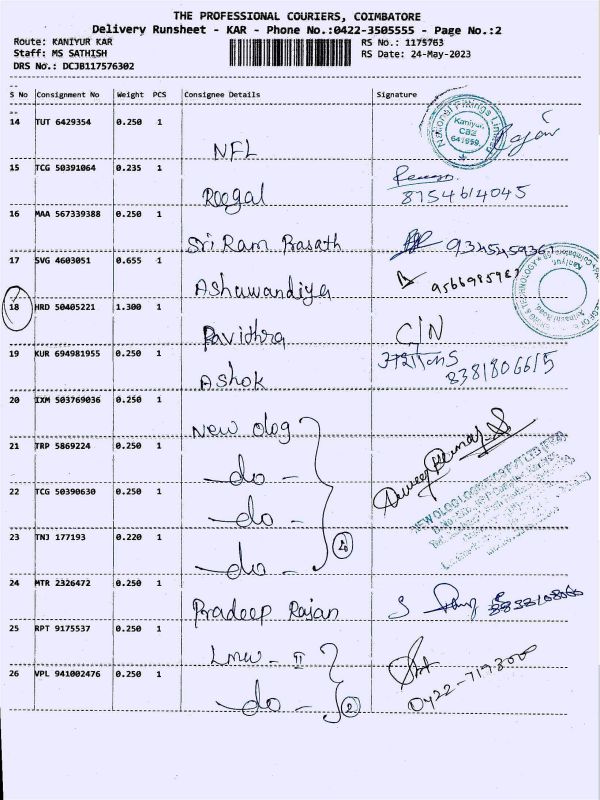 THE PROFESSIONAL COURIERS, COIMBATORE
Delivery Runsheet - KAR - Phone No.:0422-3505555 - Page No.:2
Route: KANIYUR KAR RS No.: 1175763
Staff: MS SATHISH RS Date: 24-May-2023
DRS No.: DCJB117576302
S No Consignment No Weight PCS Consignee Details Signature
14 TUT 6429354 0.250 1
National Fittings Limited
Kaniyur,
CBE
641659
NFL
15 TCG 50391064 0.235 1
Roogal 8754614045
16 MAA 567339388 0.250 1
Sri Ram Prasath
17 SVG 4603051 0.655 1
Ashawandiya
18 HRD 50405221 1.300 1
Pavithra C/N
19 KUR 694981955 0.250 1
Ashok 8381806615
20 IXM 503769036 0.250 1
New olog
21 TRP 5869224 0.250 1
-do-
22 TCG 50390630 0.250 1
-do-
23 TNJ 177193 0.220 1
-do-
24 MTR 2326472 0.250 1
Pradeep Rajan
25 RPT 9175537 0.250 1
Lmw - II
26 VPL 941002476 0.250 1
-do- 2